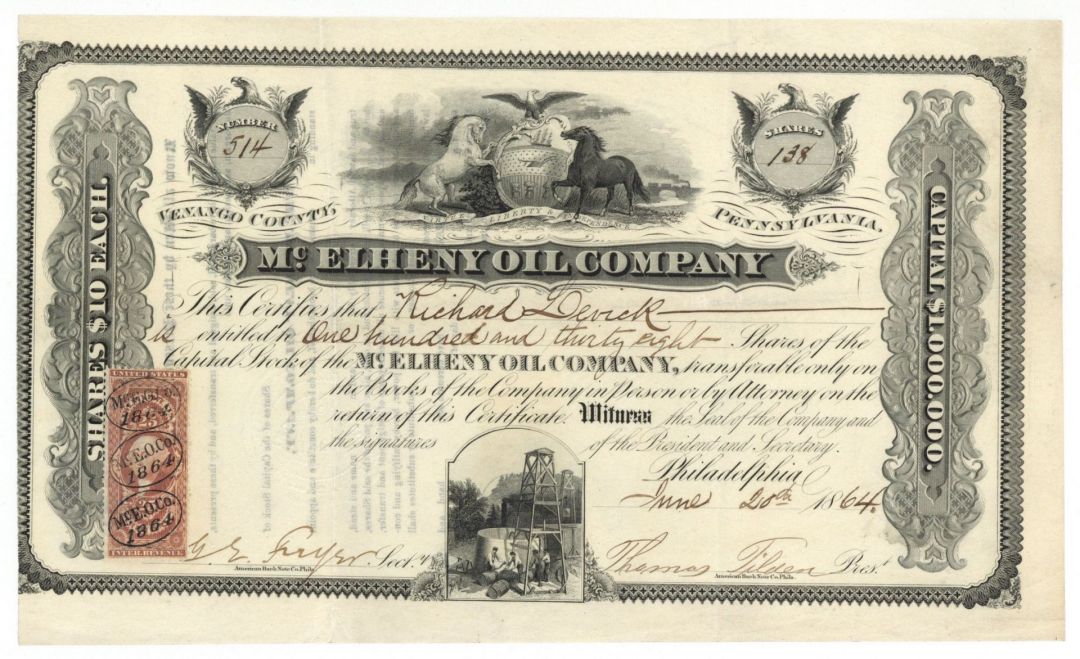 NUMBER
514
SHARES
138
LIBERTY &
VENANGO COUNTY,
PENNSYLVANIA.
SHARES $10 EACH
CAPITAL $1,000,000.
Mc ELHENY OIL COMPANY
This Certifies that Richard Levick
is entitled to One hundred and thirty eight Shares of the
Capital Stock of the Mc. ELHENY OIL COMPANY, transferable only on
the Books of the Company in Person or by Attorney on the
return of this Certificate. Witness the Seal of the Company and
the signatures of the President and Secretary.
Philadelphia
June 20th 1864.
UNITED STATES
McE.O.Co.
1864
McE.O.Co.
1864
McE.O.Co.
1864
INTER. REVENUE
Secty
Thomas Tilden Prest
American Bank Note Co. Phila.
American Bank Note Co. Phila.